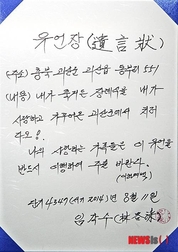 유언장(遺言狀)
(주소) 충북 괴산군 괴산읍 동부리 551
(내용) 내가 죽거든 장례식을 내가
사랑하고 가꾸어온 괴산군에서 치러
다오!
나의 사랑하는 가족들은 이 유언을
반드시 이행하여 주길 바란다.
단기 4347(서기 2014)년 8월 11일
임각수(林珏洙)
NEWSis